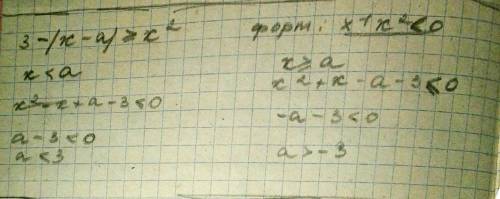 3-|x-a| > x²
форм: x¹x²<0
x < a
x²-x+a-3<0
a-3<0
a<3
x ≥ a
x²+x-a-3<0
-a-3<0
a>-3